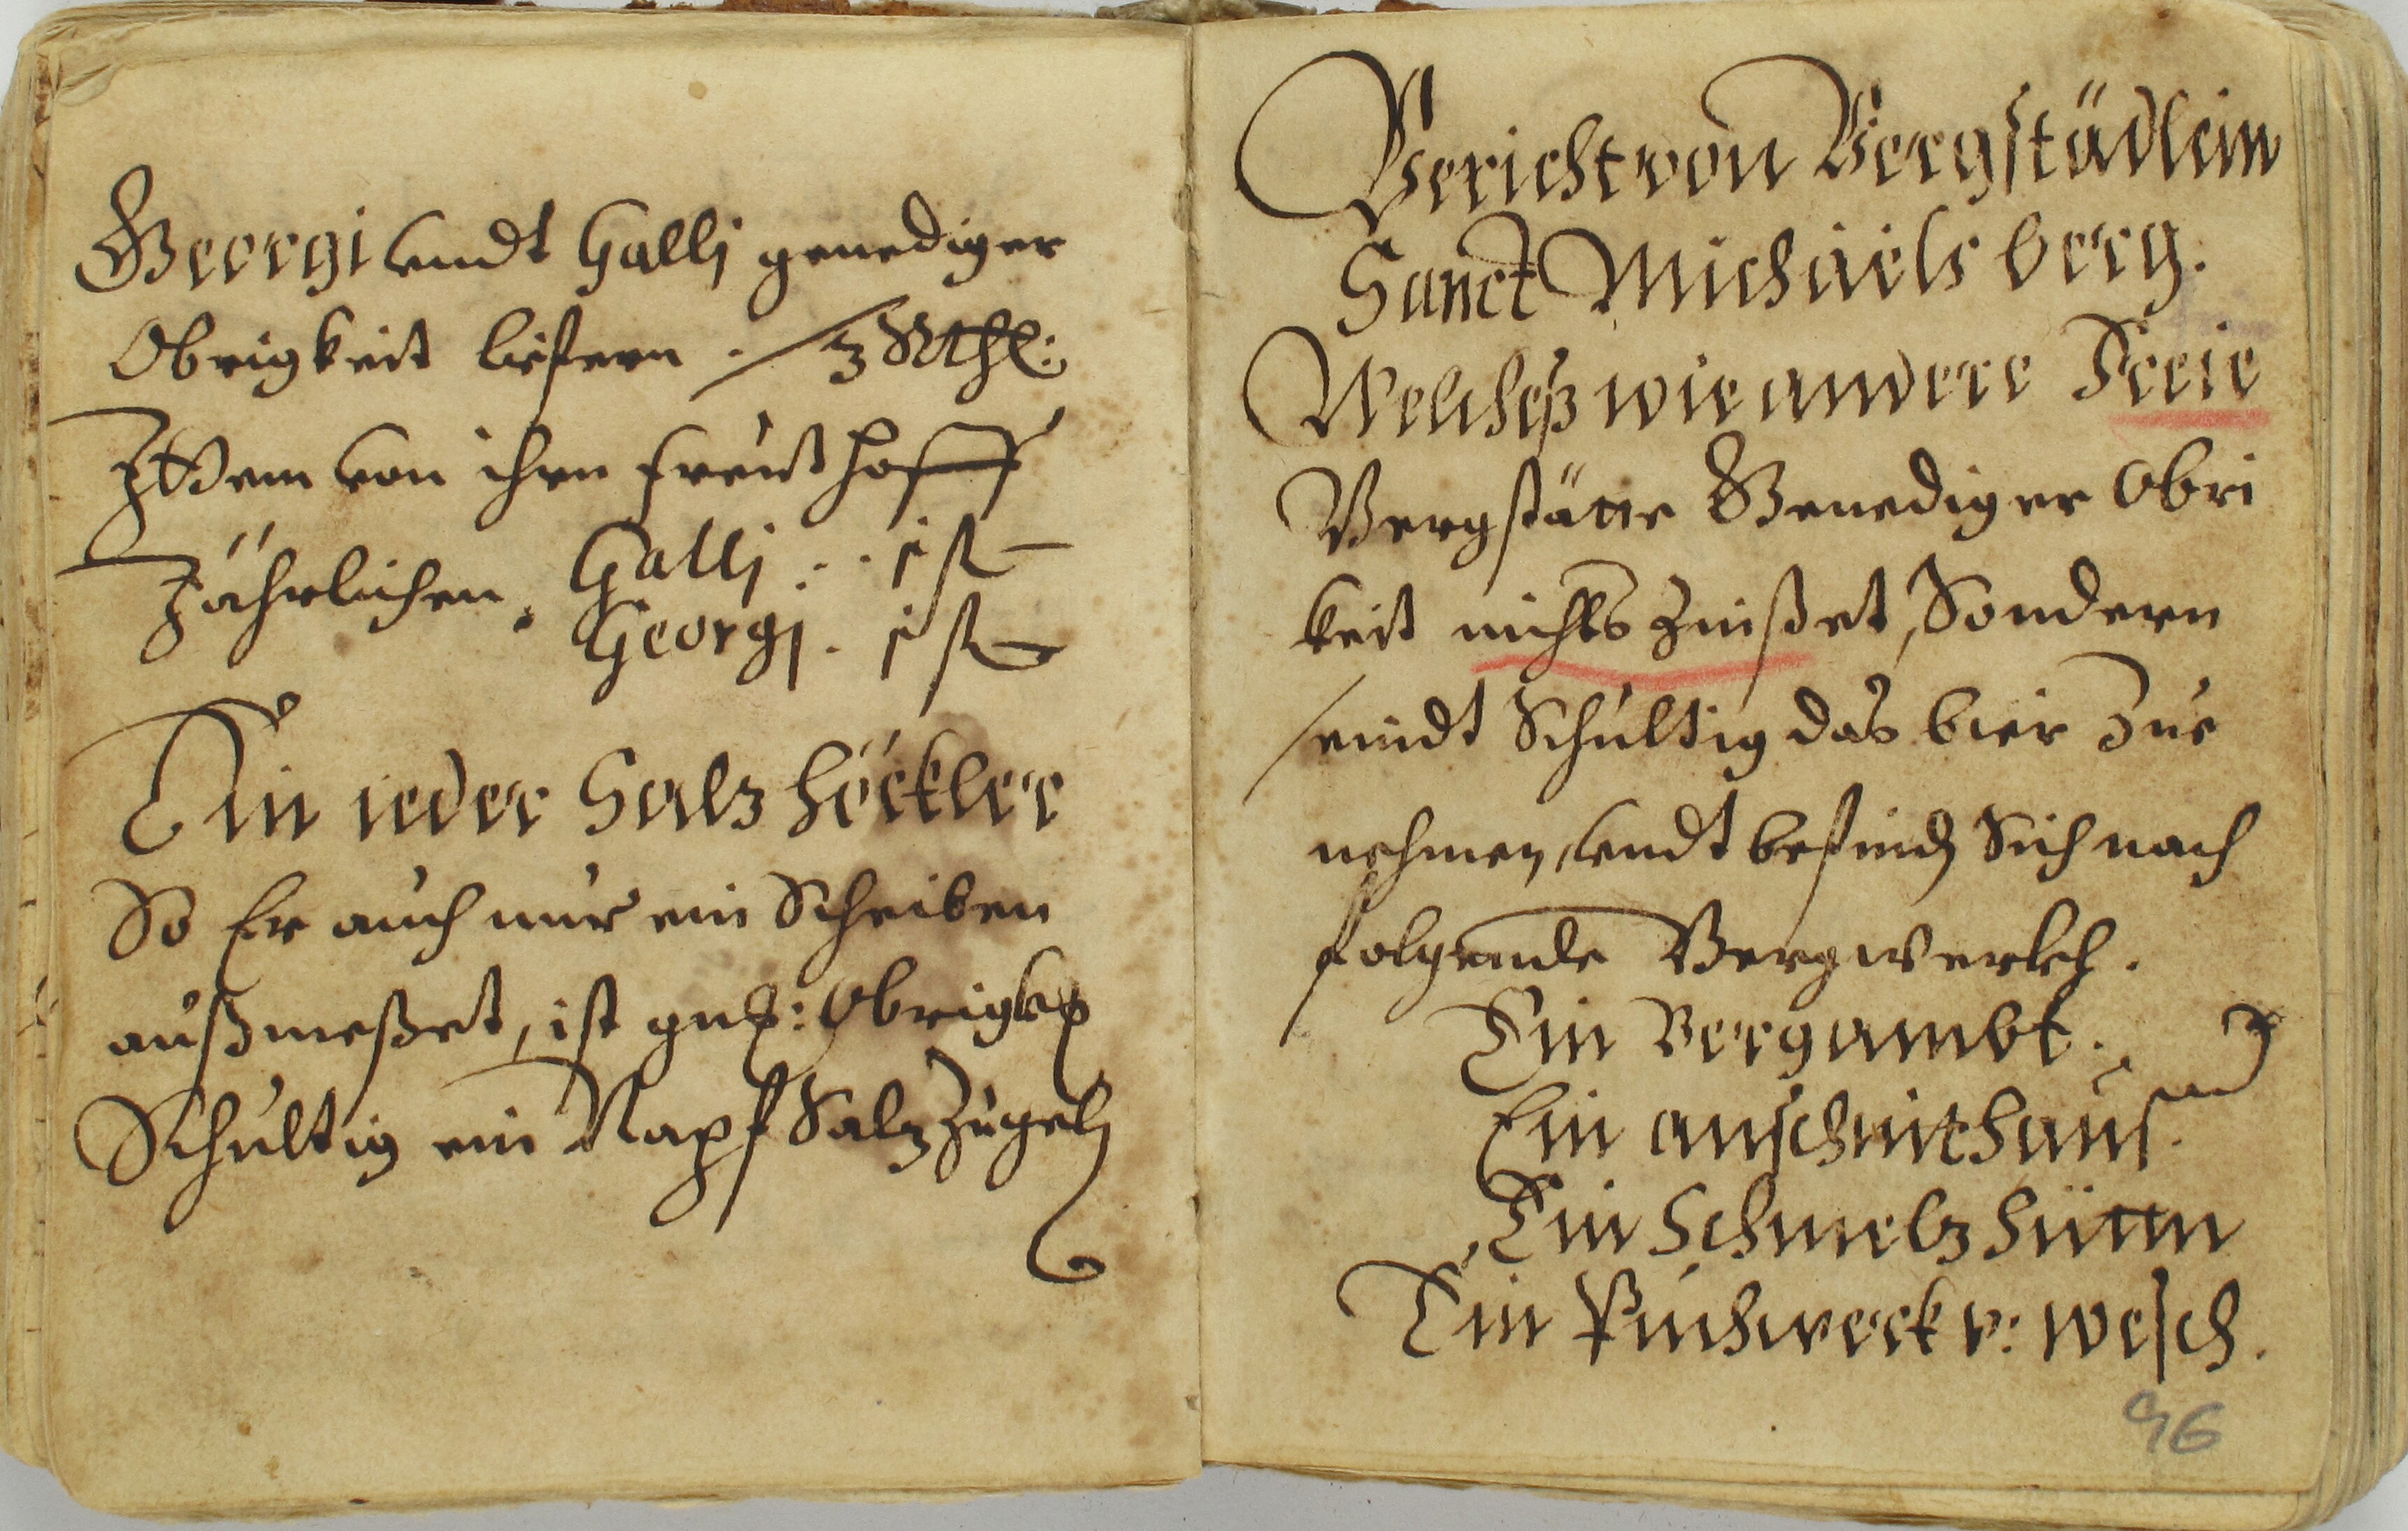 Georgi undt Gallj genediger
Obrigkeit liefern . 3 Rthl:
Zwein von ihrn freüdthoff
Jährlichen. Gallj . . 1 ß
Georgj . 1 ß
Ein ieder Saltz höckler
So Er auch nur ein Scheiben
außmeßet, ist gned: Obrigkt
Schultig ein Napf Saltz zugeb
Bericht von Bergstädlein
Sanct Michäels berg.
Welcheß wie andere Freie
Bergstätte Genediger Obri
keit nichts Zinßet, Sondern
seindt Schultig das bier Zue
nehmen, undt befind Sich nach
folgende Bergwerkh.
Ein Bergambt.
Ein anschnithaus.
Ein Schmeltz hüttn
Ein Puchwerck v: wesch.
96